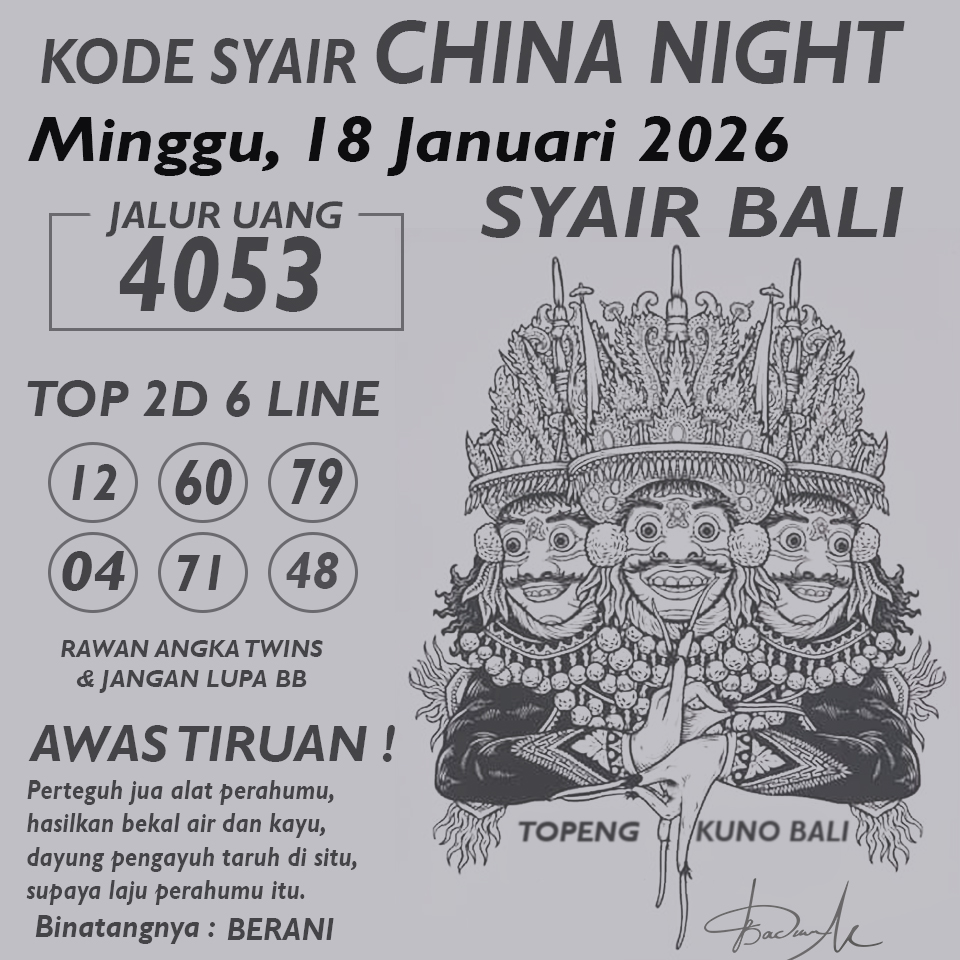 KODE SYAIR CHINA NIGHT
Minggu, 18 Januari 2026
SYAIR BALI
JALUR UANG
4053
TOP 2D 6 LINE
12 60 79
04 71 48
RAWAN ANGKA TWINS
& JANGAN LUPA BB
AWAS TIRUAN !
Perteguh jua alat perahumu,
hasilkan bekal air dan kayu,
dayung pengayuh taruh di situ,
supaya laju perahumu itu.
Binatangnya : BERANI
TOPENG KUNO BALI